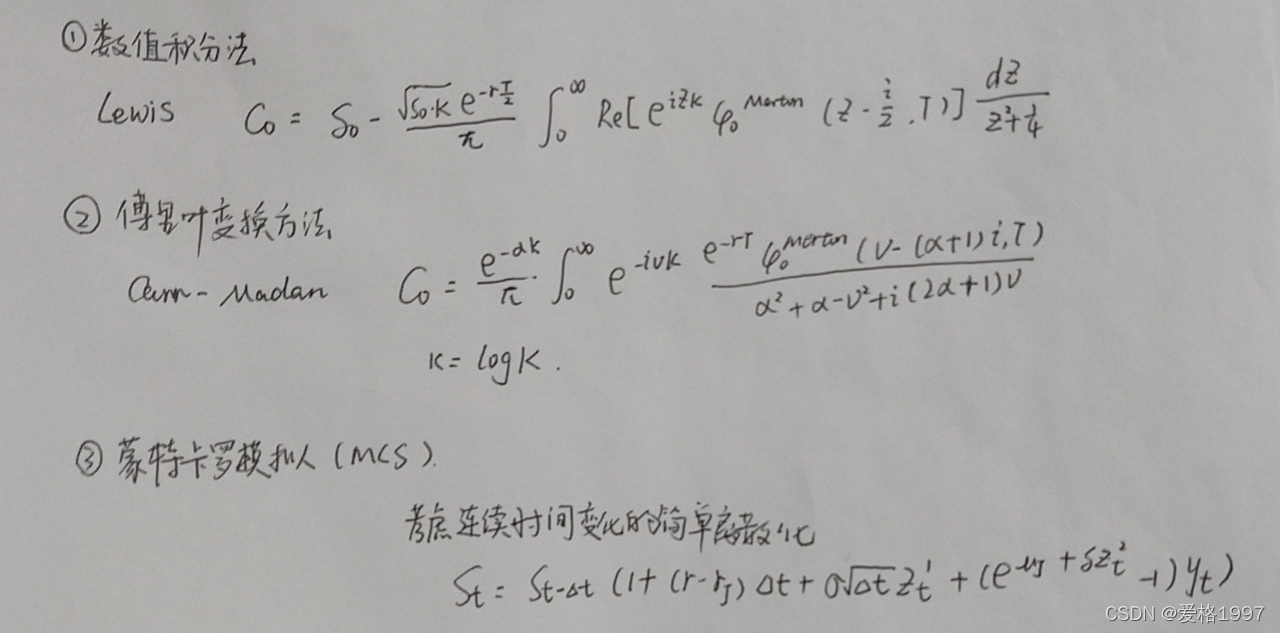 ①数值积分法
Lewis C₀ = S₀ - \frac{\sqrt{S₀·K} e^{-r\frac{T}{2}}}{π} ∫₀^∞ Re[e^{izk} φ₀^{Merton} (z - \frac{i}{2}, T)] \frac{dz}{z²+\frac{1}{4}}
② 傅里叶变换方法
Carr-Madan C₀ = \frac{e^{-αk}}{π}·∫₀^∞ e^{-ivk} \frac{e^{-rT} φ₀^{Merton} (v-(α+1)i,T)}{α²+α-v²+i(2α+1)v}
k = logK.
③ 蒙特卡罗模拟人(MCS).
考虑连续时间变化的简单离散化
S_t = S_{t-Δt} (1+(r-r_J)Δt+σ\sqrt{Δt}z_t^1+(e^{μ_J+δz_t^2}-1)y_t)
CSDN @爱格1997